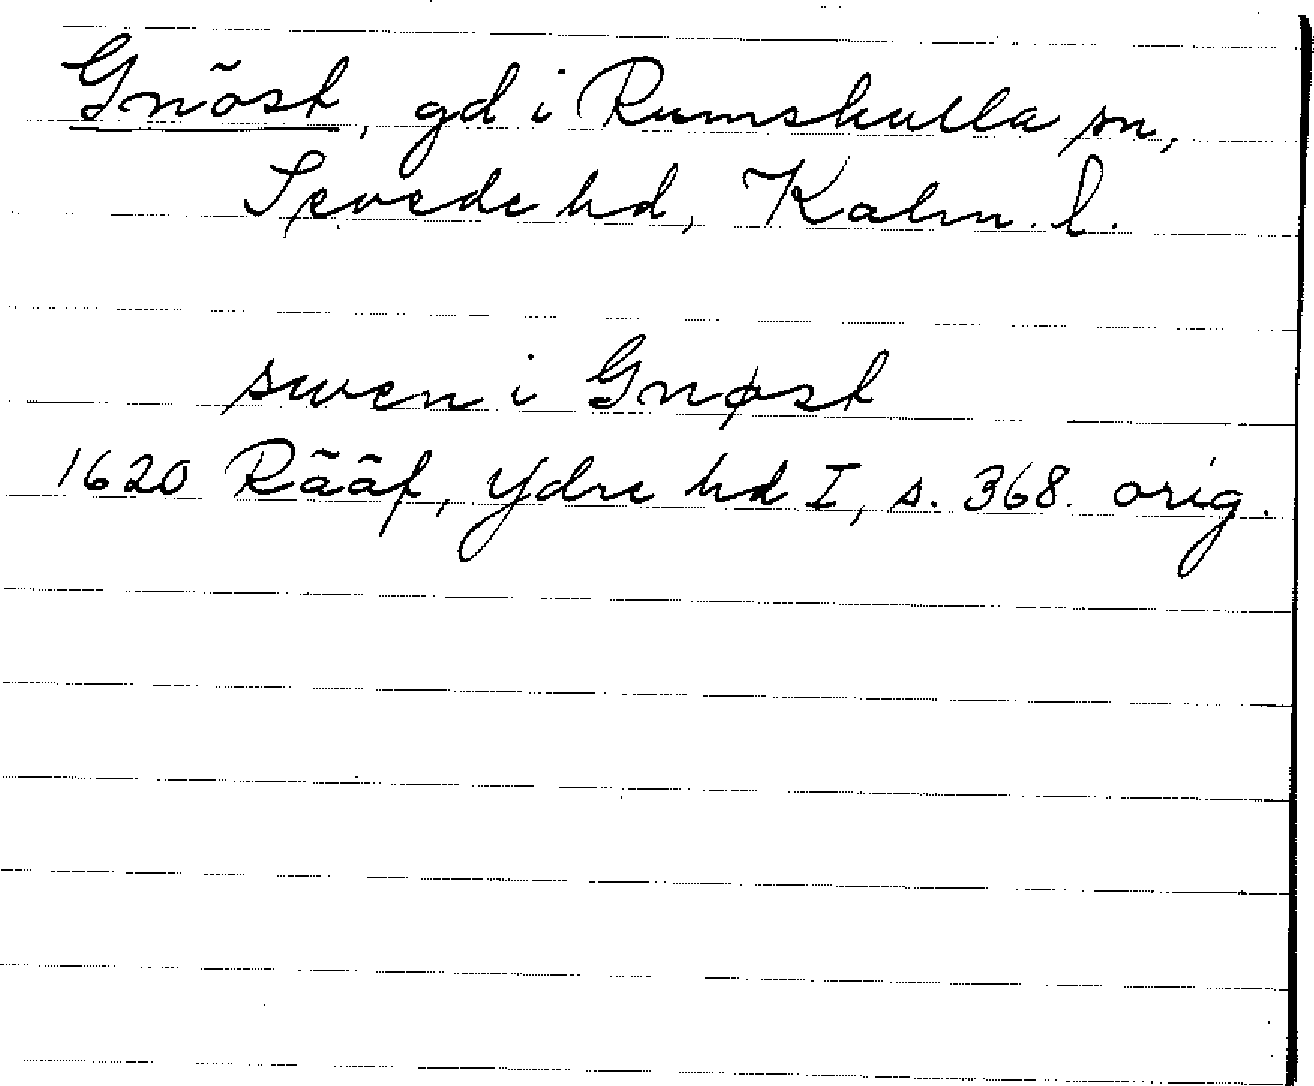 Gnöst, gd i Rumskulla sn,
Sevede hd, Kalm. l.
swen i Gnøst
1620 Rääf, Ydre hd I, s. 368. orig.